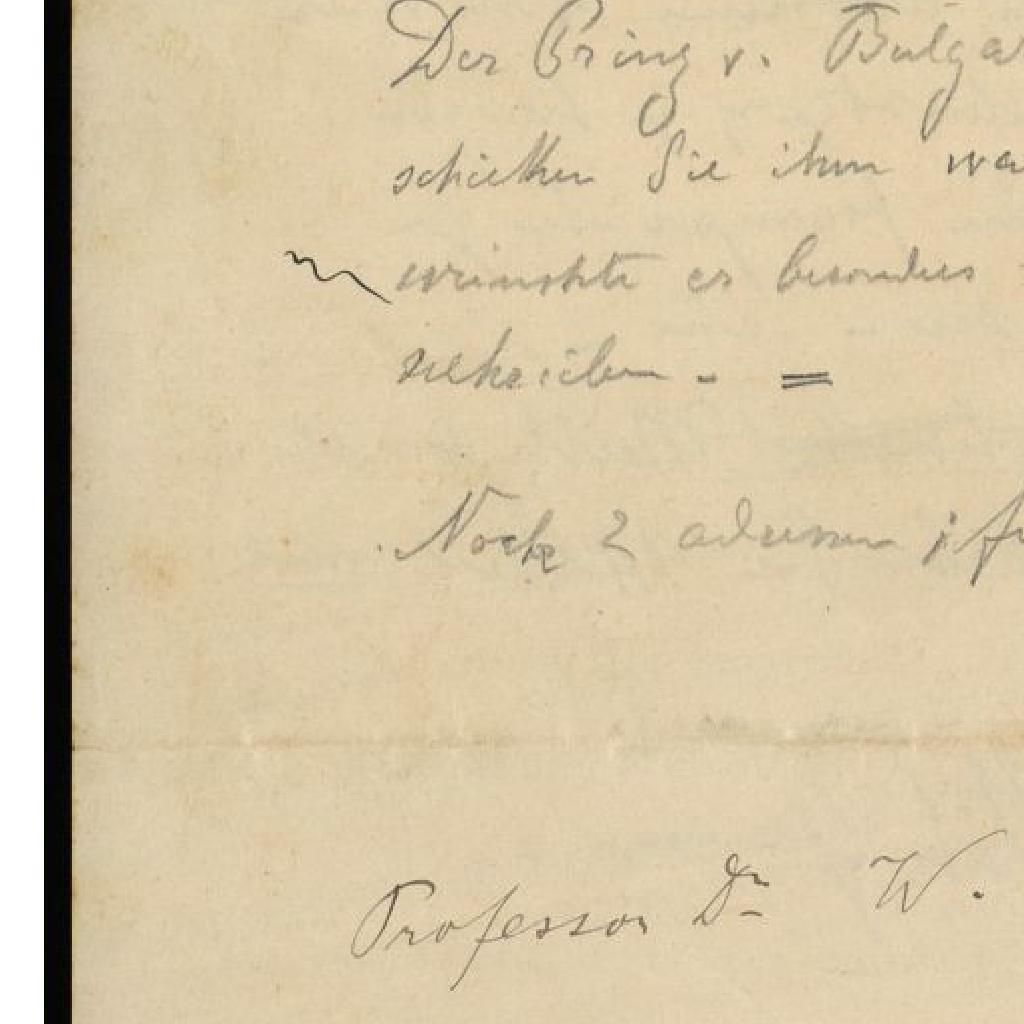 Der Prinz v. Bulga
schicken Sie ihm wa
wünschte er besonders
schreiben. =
Noch 2 adressen ; fü
Professor Dr W.